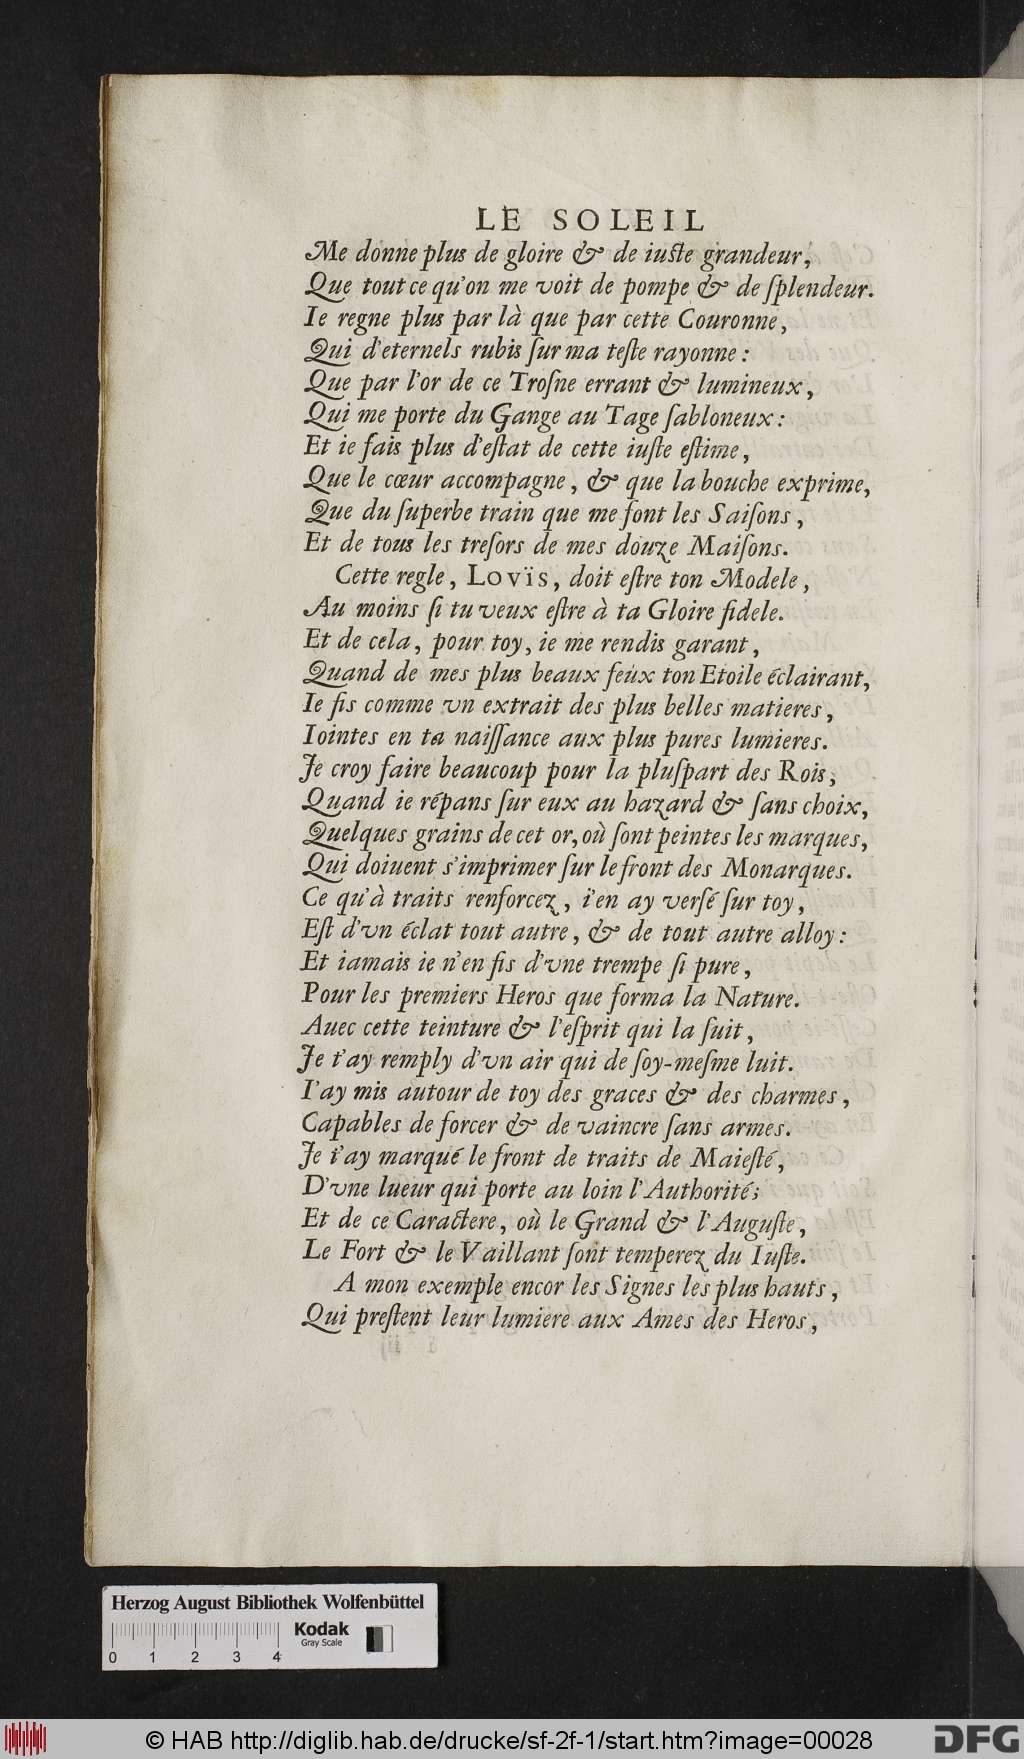 LE SOLEIL
Me donne plus de gloire & de iuste grandeur,
Que tout ce qu'on me voit de pompe & de ſplendeur.
Ie regne plus par là que par cette Couronne,
Qui d'eternels rubis ſur ma teſte rayonne :
Que par l'or de ce Troſne errant & lumineux,
Qui me porte du Gange au Tage ſabloneux :
Et ie fais plus d'eſtat de cette iuſte eſtime,
Que le cœur accompagne, & que la bouche exprime,
Que du ſuperbe train que me font les Saiſons,
Et de tous les treſors de mes douze Maiſons.
Cette regle, LOVÏS, doit eſtre ton Modele,
Au moins ſi tu veux eſtre à ta Gloire fidele.
Et de cela, pour toy, ie me rendis garant,
Quand de mes plus beaux feux ton Etoile éclairant,
Ie fis comme vn extrait des plus belles matieres,
Iointes en ta naiſſance aux plus pures lumieres.
Je croy faire beaucoup pour la pluſpart des Rois,
Quand ie répans ſur eux au hazard & ſans choix,
Quelques grains de cet or, où ſont peintes les marques,
Qui doiuent s'imprimer ſur le front des Monarques.
Ce qu'à traits renforcez, i'en ay verſé ſur toy,
Eſt d'vn éclat tout autre, & de tout autre alloy :
Et iamais ie n'en fis d'vne trempe ſi pure,
Pour les premiers Heros que forma la Nature.
Auec cette teinture & l'eſprit qui la ſuit,
Je t'ay remply d'vn air qui de ſoy-meſme luit.
I'ay mis autour de toy des graces & des charmes,
Capables de forcer & de vaincre ſans armes.
Je t'ay marqué le front de traits de Maieſté,
D'vne lueur qui porte au loin l'Authorité;
Et de ce Caractere, où le Grand & l'Auguſte,
Le Fort & le Vaillant ſont temperez du Iuſte.
A mon exemple encor les Signes les plus hauts,
Qui preſtent leur lumiere aux Ames des Heros,
Herzog August Bibliothek Wolfenbüttel
Kodak
Gray Scale
0 1 2 3 4
© HAB http://diglib.hab.de/drucke/sf-2f-1/start.htm?image=00028
DFG